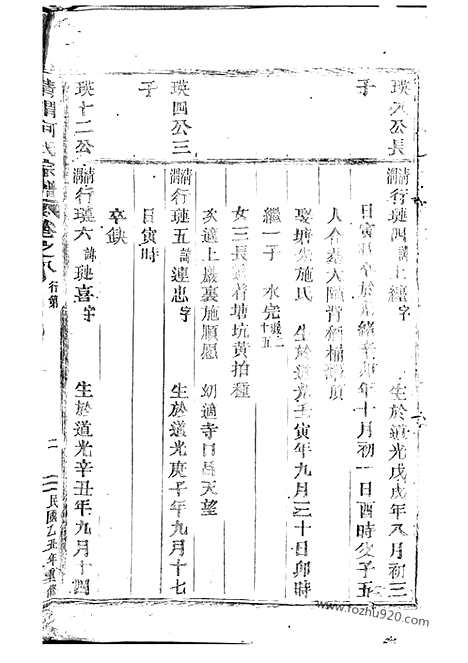 瑛六公長
子
清溍行璉四諱上經字 生於道光戊戌年八月初三
日寅時卒於光緒辛卯年十月初一日酉時父子五
人合墓大
娶塘尖施氏 生於道光壬寅年九月三十日卯時
繼一子 永完
女三長適 塘坑黃拍種
次適上嚴裏施順愿 幼適寺口呂天望
瑛四公三
子
行璉五諱連忠字 生於道光庚子年九月十七
日寅時
卒缺
瑛十二公
行璉六諱璉喜字 生於道光辛丑年九月十四
清 何氏宗譜 卷之八 行第 二 民國乙丑年重修
www.fozhu920.com